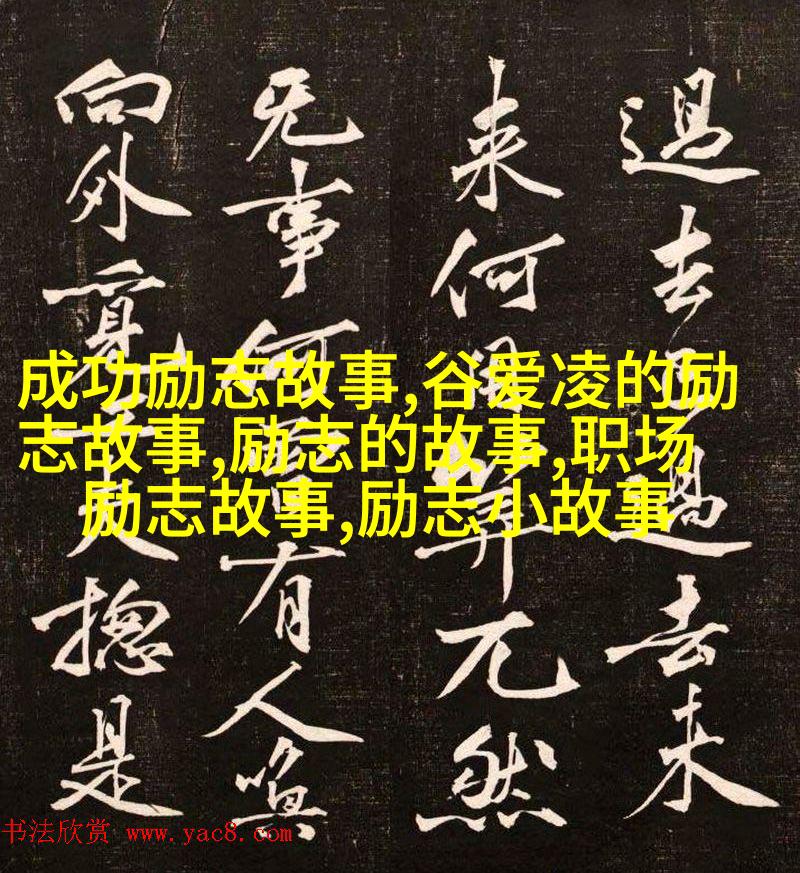 過去過去未
来何用筭兀然
无事何有人喚
向外覓夫揔是
成功励志故事,谷爱凌的励
志故事,励志的故事,职场
励志故事,励志小故事
书法欣赏 www.yac8.com